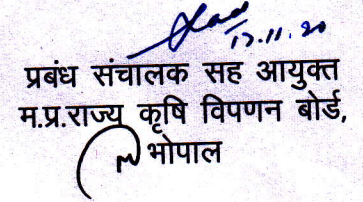 17.11.20
प्रबंध संचालक सह आयुक्त
म.प्र.राज्य कृषि विपणन बोर्ड,
भोपाल